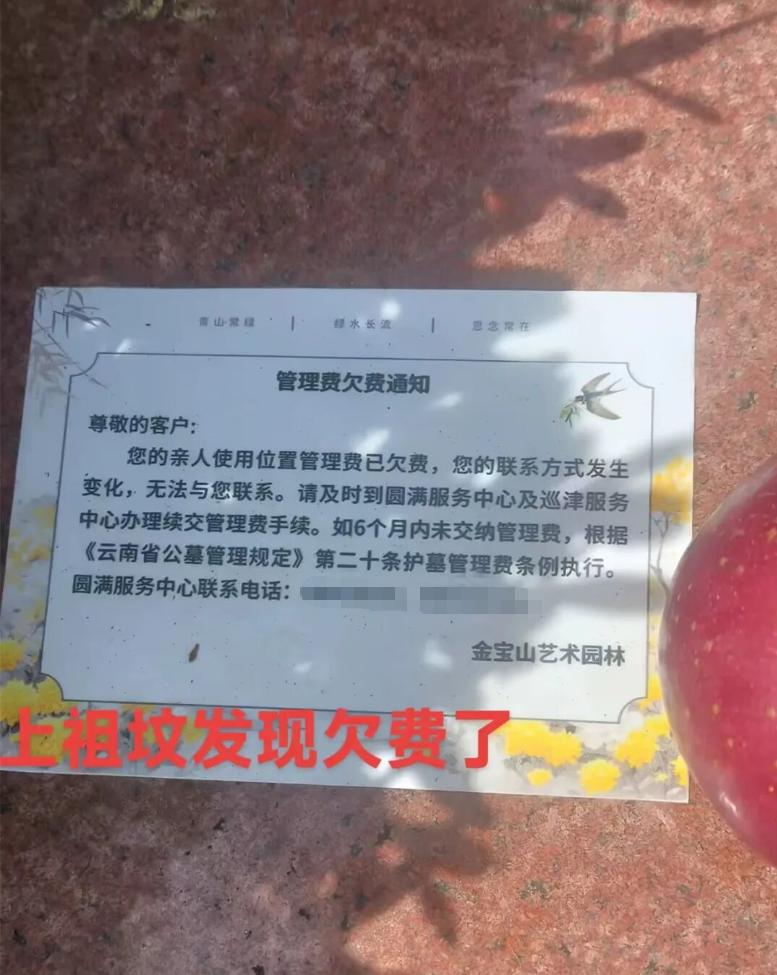 青山常绿 | 绿水长流 | 思念常在
管理费欠费通知
尊敬的客户：
您的亲人使用位置管理费已欠费，您的联系方式发生
变化，无法与您联系。请及时到圆满服务中心及巡津服务
中心办理续交管理费手续。如6个月内未交纳管理费，根据
《云南省公墓管理规定》第二十条护墓管理费条例执行。
圆满服务中心联系电话：
金宝山艺术园林
上祖坟发现欠费了